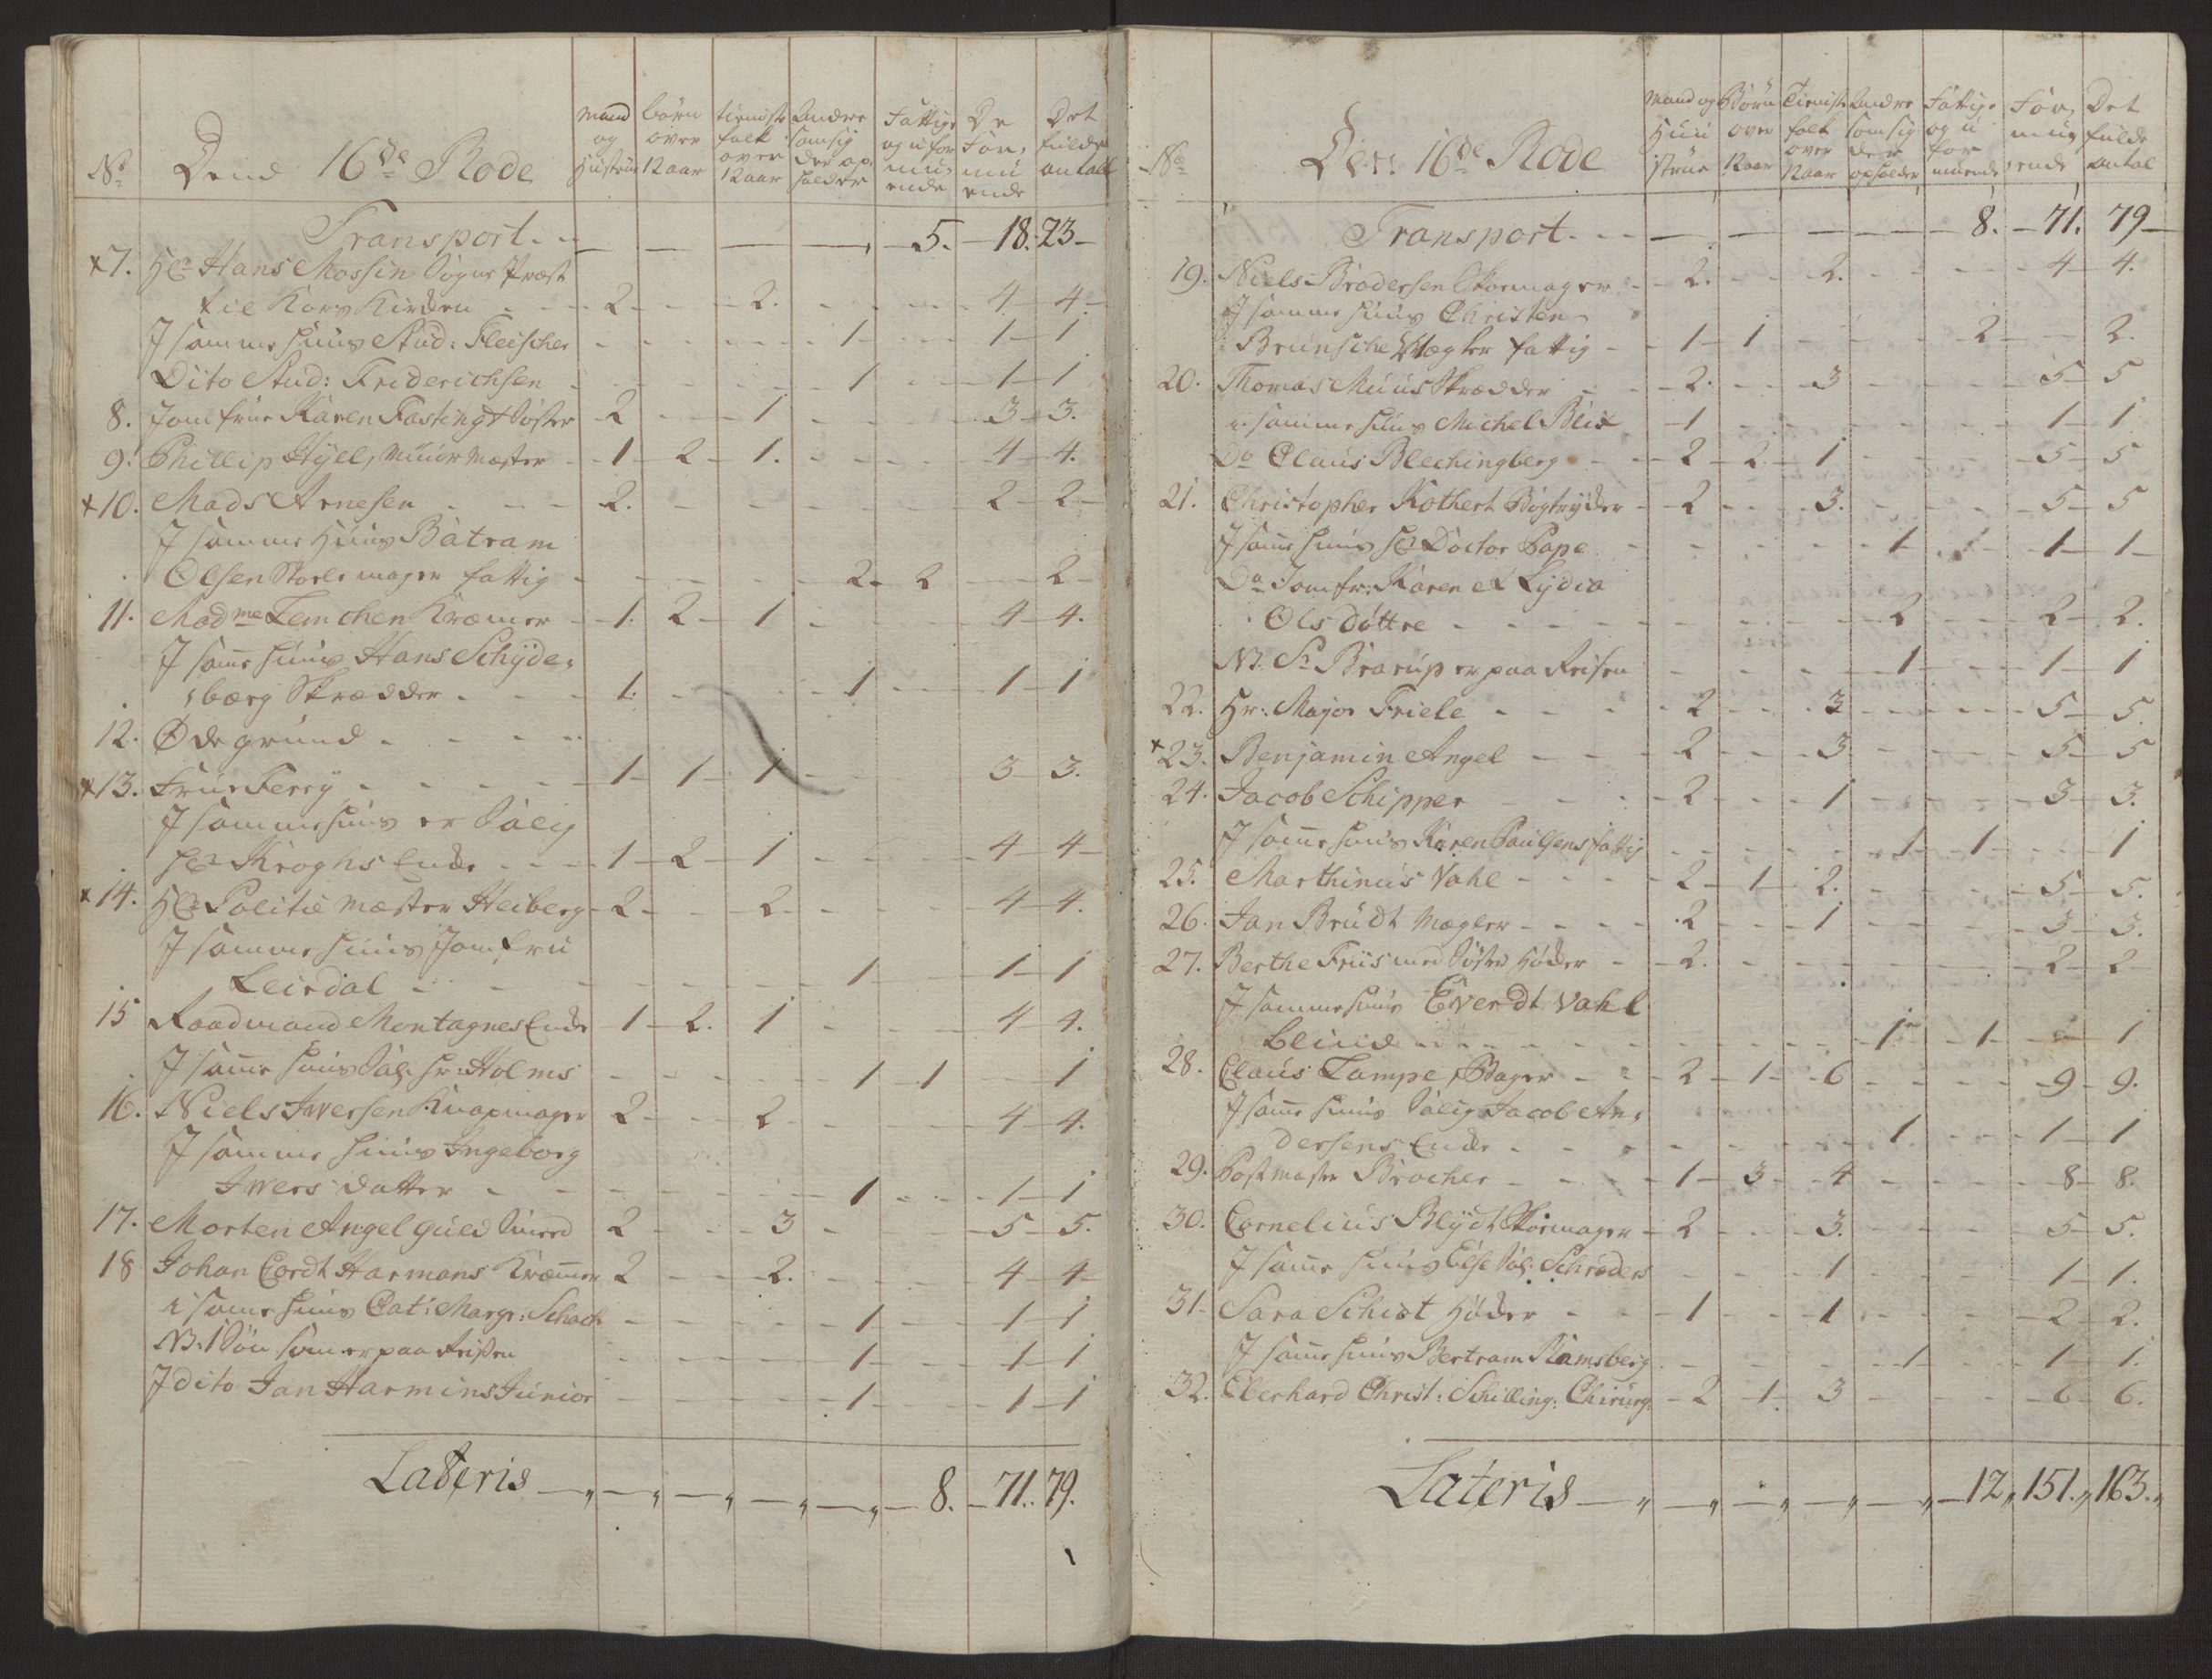 No Dend 16de Rode mand og Hustrue börn over 12 aar tieniste folk over 12 aar Andre som sig der op holder Fattige og ufor mu ende De For mu ende Det fulde antall
Transport - - - - - 5. - 18. - 23 -
x7. Hr Hans Mossin Sogne Præst
til Kors Kirken - 2 - 2. - 4 - 4
J samme huus Stud: Fleischer - 1 - 1 - 1
Dito Stud: Friderichsen - 1 - 1 - 1
8. Jomfrue Karen Fasting & Søster - 2 - 1 - 3 - 3.
9. Phillip Hyll, Muur Mæster - 1 - 2 - 1. - 4 - 4.
x10. Mads Arnesen - 2. - 2 - 2
J samme Huus Batram
Olsen Stoelemager fattig - 2 - 2 - 2
11. Madme Lemchen Kræmer - 1. 2 - 1 - 4 - 4.
J same huus Hans Schyde,
bærg Skrædder - 1. - 1 - 1 - 1
12. Ödegrund - - -
x13. Frue Ferry - 1 - 1 - 1 - 3 - 3.
J samme huus er Salig
Hr Kroghs Enke - 1 - 2 - 1 - 4 - 4
x14. Hr Politie Mæster Heiberg - 2 - 2 - 4 - 4.
J samme huus Jomfru
Leirdal - 1 - 1 - 1
15 Raadmand Montagnes Enke - 1 - 2. 1 - 4 - 4.
J same huus Sal. Hr: Holms - 1 - 1 - 1
16. Niels Iversen Knapmager 2 - 2 - 4 - 4.
J samme huus Ingeborg
Ivers datter - 1 - 1 - 1
17. Morten Angel Guld Smed 2 - 3 - 5 - 5.
18 Johan Cordt Harmans Kræmer 2 - 2. - 4 - 4
i same huus Cat: Margr: Schach - 1 - 1 - 1
NB. 1 Søn som er paa Reisen - 1 - 1 - 1
J dito Jan Harmens Junior - 1 - 1 - 1
Lateris - - - - - 8. - 71. 79.
No Den 16de Rode Mand og Huu strue Börn over 12 aar Tieniste folk over 12 aar Andre som sig der opholder Fattige og u for muende For, mu ende Det fulde antal
Transport - - - - - 8. - 71. 79 -
19. Niels Brodersen Skoemager - 2. - 2. - 4 - 4.
J samme huus Christen
Brunsche Vægter fattig - 1 - 1 - 2 - 2.
20. Thomas Muus Skrædder - 2. - 3 - 5 - 5
i samme huus Michel Blix - 1 - 1 - 1
Do Claus Blechingberg - 2 - 2 - 1 - 5 - 5
21. Christopher Kothert Bogtrycker - 2 - 3. - 5 - 5
J same huus Hr Doctor Pape - 1 - 1 - 1 -
Do Jomfr: Karen et Lydia
Ols döttre - 2 - 2 - 2.
NB. Sr Brarup er paa Reisen - 1 - 1 - 1
22. Hr: Major Friele - 2 - 3 - 5 - 5.
x23. Benjamin Angel - 2 - 3 - 5 - 5
24. Jacob Schipper - 2 - 1 - 3 - 3.
J same huus Karen Paulsens fattig - 1 - 1 - 1
25. Marthinus Vahl - 2 - 1 - 2. - 5 - 5.
26. Jan Brudt Mægler - 2 - 1 - 3 - 3.
27. Berthe Friis med Söster Höcker - 2. - 2 - 2
J samme huus Everdt Vahl
blind - 1 - 1 - 1
28. Claus Lampe, Bager - 2 - 1 - 6 - 9 - 9.
J same huus Salig Jacob An,
dersens Enke - 1 - 1 - 1
29. Postmaster Brocher - 1 - 3 - 4 - 8 - 8.
30. Cornelius Blydt Skoemager - 2 - 3. - 5 - 5.
J same huus Else Sal. Schröders - 1 - 1 - 1.
31. Sara Schiöt Höcker - 1 - 1 - 2 - 2.
J same huus Bertram Ramsberg - 1 - 1 - 1.
32. Eberhard Christ: Schilling: Chirurg. - 2 - 1 - 3 - 6 - 6.
Lateris - - - - - 12, 151., 163.,